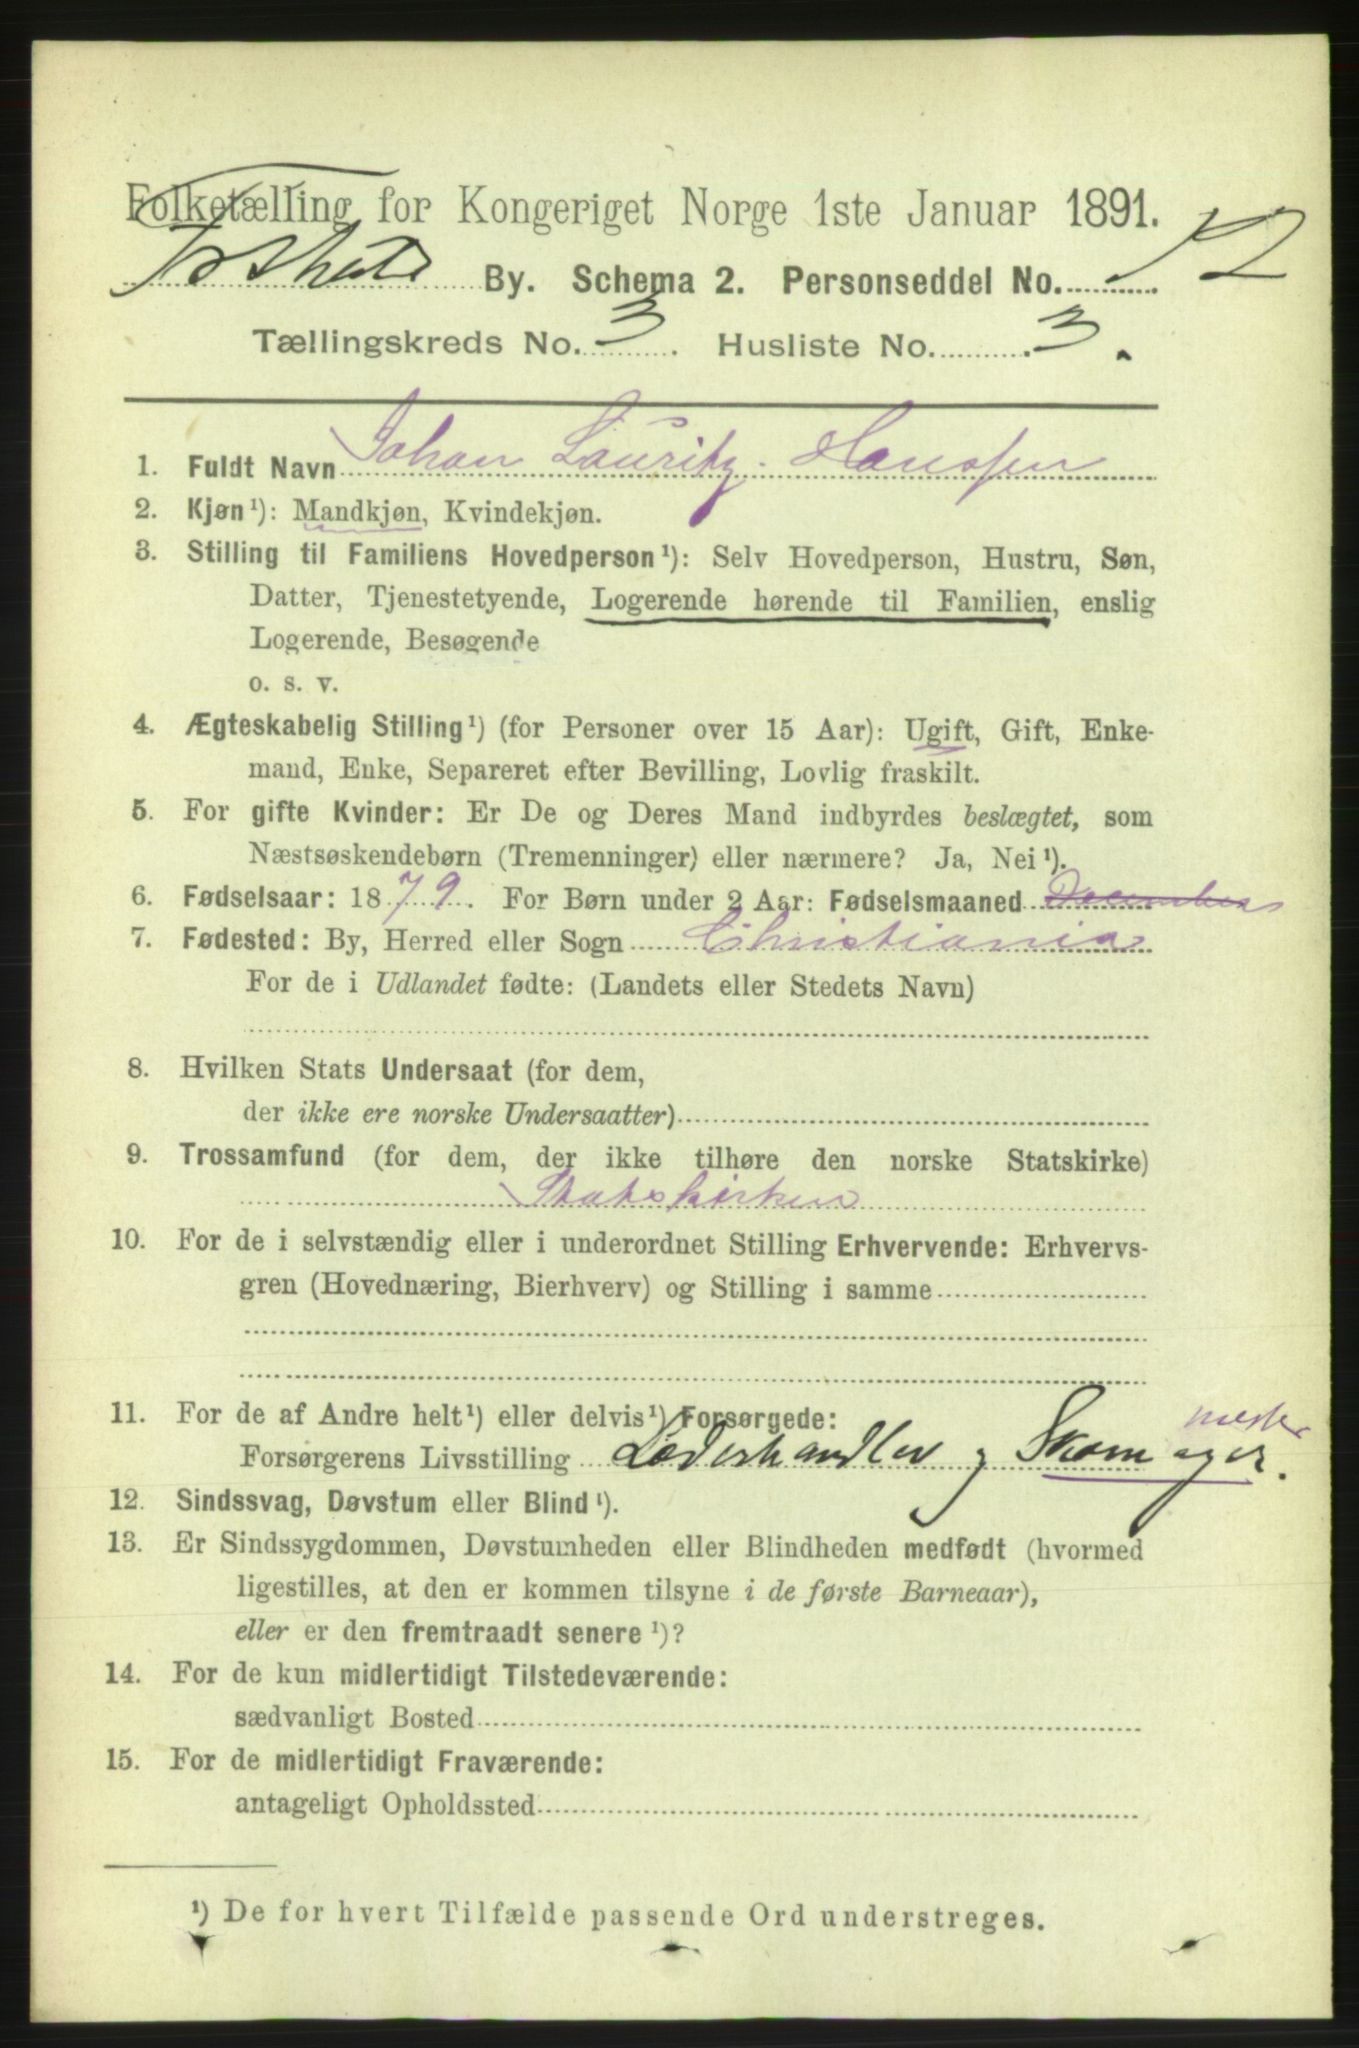 Folketælling for Kongeriget Norge 1ste Januar 1891.
By. Schema 2. Personseddel No. 12
Tællingskreds No. 3. Husliste No. 3.
1. Fuldt Navn Johan Lauritz Hanssen
2. Kjøn¹): Mandkjøn, Kvindekjøn.
3. Stilling til Familiens Hovedperson¹): Selv Hovedperson, Hustru, Søn,
Datter, Tjenestetyende, Logerende hørende til Familien, enslig
Logerende, Besøgende
o. s. v.
4. Ægteskabelig Stilling¹) (for Personer over 15 Aar): Ugift, Gift, Enke-
mand, Enke, Separeret efter Bevilling, Lovlig fraskilt.
5. For gifte Kvinder: Er De og Deres Mand indbyrdes beslægtet, som
Næstsøskendebørn (Tremenninger) eller nærmere? Ja, Nei¹).
6. Fødselsaar: 1879. For Børn under 2 Aar: Fødselsmaaned December
7. Fødested: By, Herred eller Sogn Christiania
For de i Udlandet fødte: (Landets eller Stedets Navn)
8. Hvilken Stats Undersaat (for dem,
der ikke ere norske Undersaatter)
9. Trossamfund (for dem, der ikke tilhøre den norske Statskirke)
Statskirken
10. For de i selvstændig eller i underordnet Stilling Erhvervende: Erhvervs-
gren (Hovednæring, Bierhverv) og Stilling i samme
11. For de af Andre helt¹) eller delvis¹) Forsørgede:
mester
Forsørgerens Livsstilling Læderhandler og Skomager.
12. Sindssvag, Døvstum eller Blind¹).
13. Er Sindssygdommen, Døvstumheden eller Blindheden medfødt (hvormed
ligestilles, at den er kommen tilsyne i de første Barneaar),
eller er den fremtraadt senere¹)?
14. For de kun midlertidigt Tilstedeværende:
sædvanligt Bosted
15. For de midlertidigt Fraværende:
antageligt Opholdssted
¹) De for hvert Tilfælde passende Ord understreges.